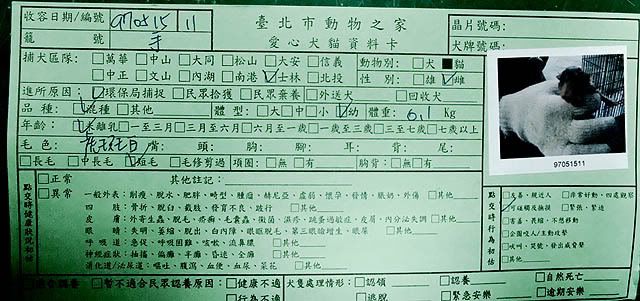 收容日期/編號 970515 11 臺北市動物之家 晶片號碼:
籠 號 愛心犬貓資料卡 犬牌號碼:
捕犬區隊: □萬華 □中山 □大同 □松山 □大安 □信義 動物別: □犬 ■貓
□中正 □文山 □內湖 □南港 ☑士林 □北投 性 別: □雄 ☑雌
進所原因: ☑環保局捕捉 □民眾拾獲 □民眾棄養 □外送犬 □回收犬
品 種: ☑混種 □其他 體 型: □大 □中 □小 ☑幼 體重: 0.1 Kg
年齡: ☑未離乳 □一至三月 □三月至六月 □六月至一歲 □一歲至三歲 □三至七歲 □七歲以上
毛 色: 虎斑白 嘴: 頭: 胸: 腳: 耳: 背: 尾:
□長毛 □中長毛 ☑短毛 □毛修剪過 項圈: □無 □有 胸背: □無 □有
97051511
點交時健康狀況初估 □正常 其他註記:
□異常 一般外表: 削瘦、脫水、肥胖、畸型、腫瘤、赫尼亞、虛弱、懷孕、發情、脹奶、外傷 □其他
四 肢: 骨折、脫臼、截肢、發育不良、跛行 □其他
皮 膚: 外寄生蟲、脫毛、疥癬、毛囊蟲、黴菌、濕疹、跳蚤過敏症、皮屑、內分泌失調 □其他
眼 睛: 失明、萎縮、脫出、白內障、眼瞼脫毛、第三眼瞼增生、眼屎 □其他
呼 吸 道: 急促、呼吸困難、咳嗽、流鼻膿 □其他
神經症狀: 抽搐、偏癱、半癱、昏迷、全癱 □其他
消化道/泌尿道: 嘔吐、腹瀉、血便、血尿、菜花 □其他
點交時行為初估 □友善、親近人 □非常好動、四處觀察
☑可碰觸及撫摸 □緊張、緊迫
□害羞、畏縮、不想移動
□企圖咬人/主動攻擊
□吠叫、哭號、發出威脅聲
□其他
□適合認養 □暫不適合民眾認養原因: □健康不適 犬隻處理情形: □認領 □認養 □自然死亡
□行為不適 □逃脫 □緊急安樂 □逾期安樂